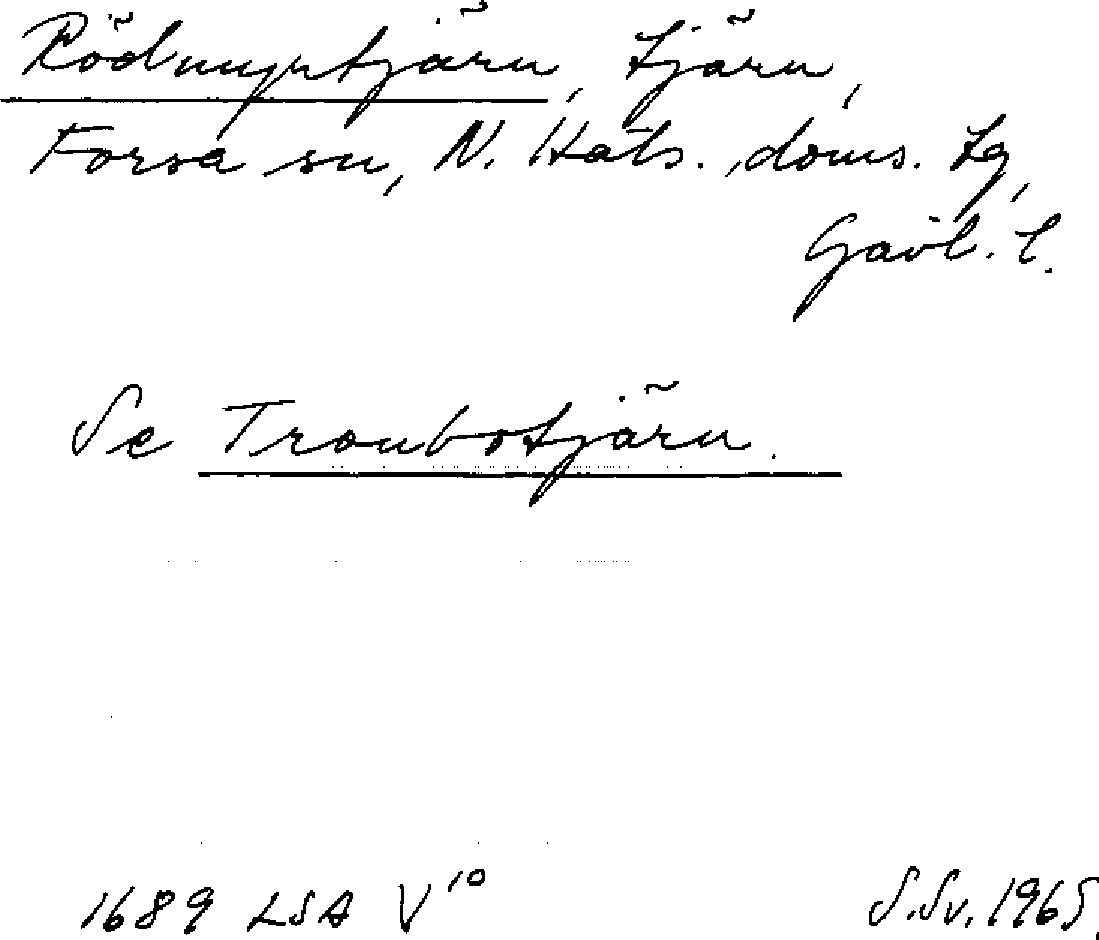 Rödmyrtjärn, tjärn,
Forsa sn, N. Häls. doms. tg,
Gävl. l.
Se Tronbotjärn.
1689 LSA V¹⁰
S.Sv. 1965.